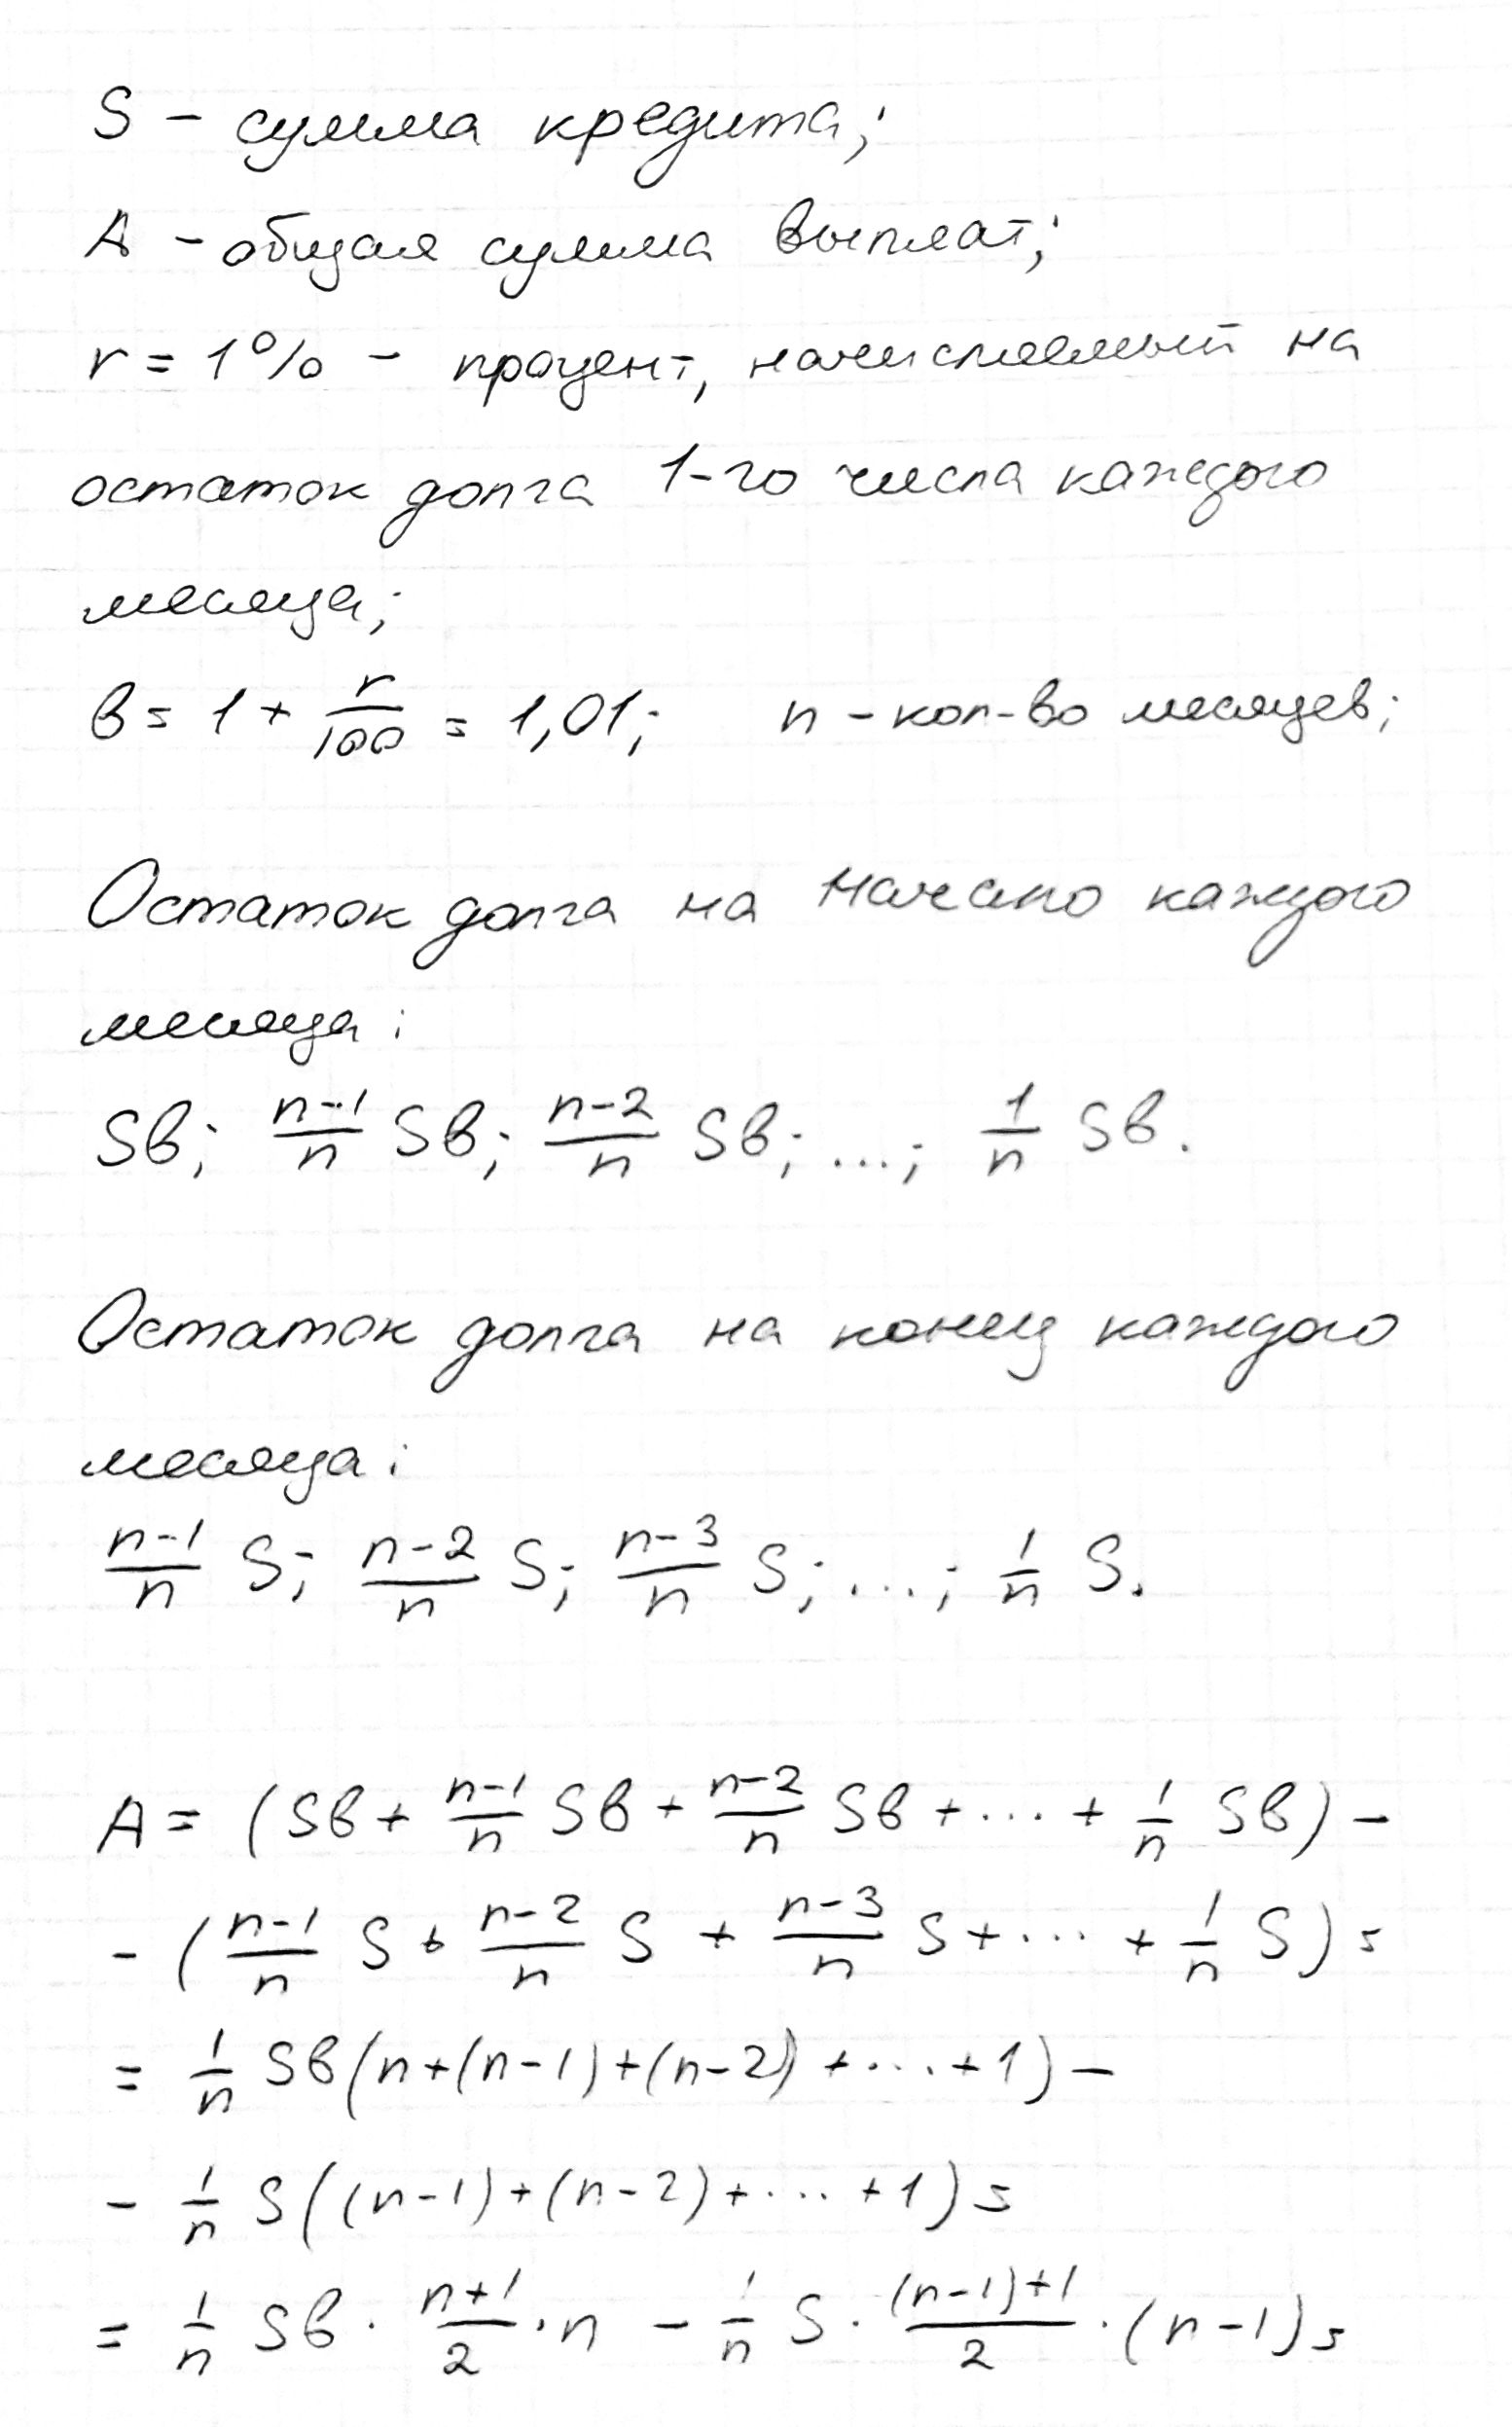 S – сумма кредита;
A – общая сумма выплат;
r = 1% – процент, начисляемый на
остаток долга 1-го числа каждого
месяца;
b = 1 + r/100 = 1,01; n – кол-во месяцев;
Остаток долга на начало каждого
месяца:
Sb; (n-1)/n Sb; (n-2)/n Sb; ...; 1/n Sb.
Остаток долга на конец каждого
месяца:
(n-1)/n S; (n-2)/n S; (n-3)/n S; ...; 1/n S.
A = (Sb + (n-1)/n Sb + (n-2)/n Sb + ... + 1/n Sb) –
– ((n-1)/n S + (n-2)/n S + (n-3)/n S + ... + 1/n S) =
= 1/n Sb(n+(n-1)+(n-2)+...+1) –
– 1/n S((n-1)+(n-2)+...+1) =
= 1/n Sb · (n+1)/2 · n – 1/n S · ((n-1)+1)/2 · (n-1) =